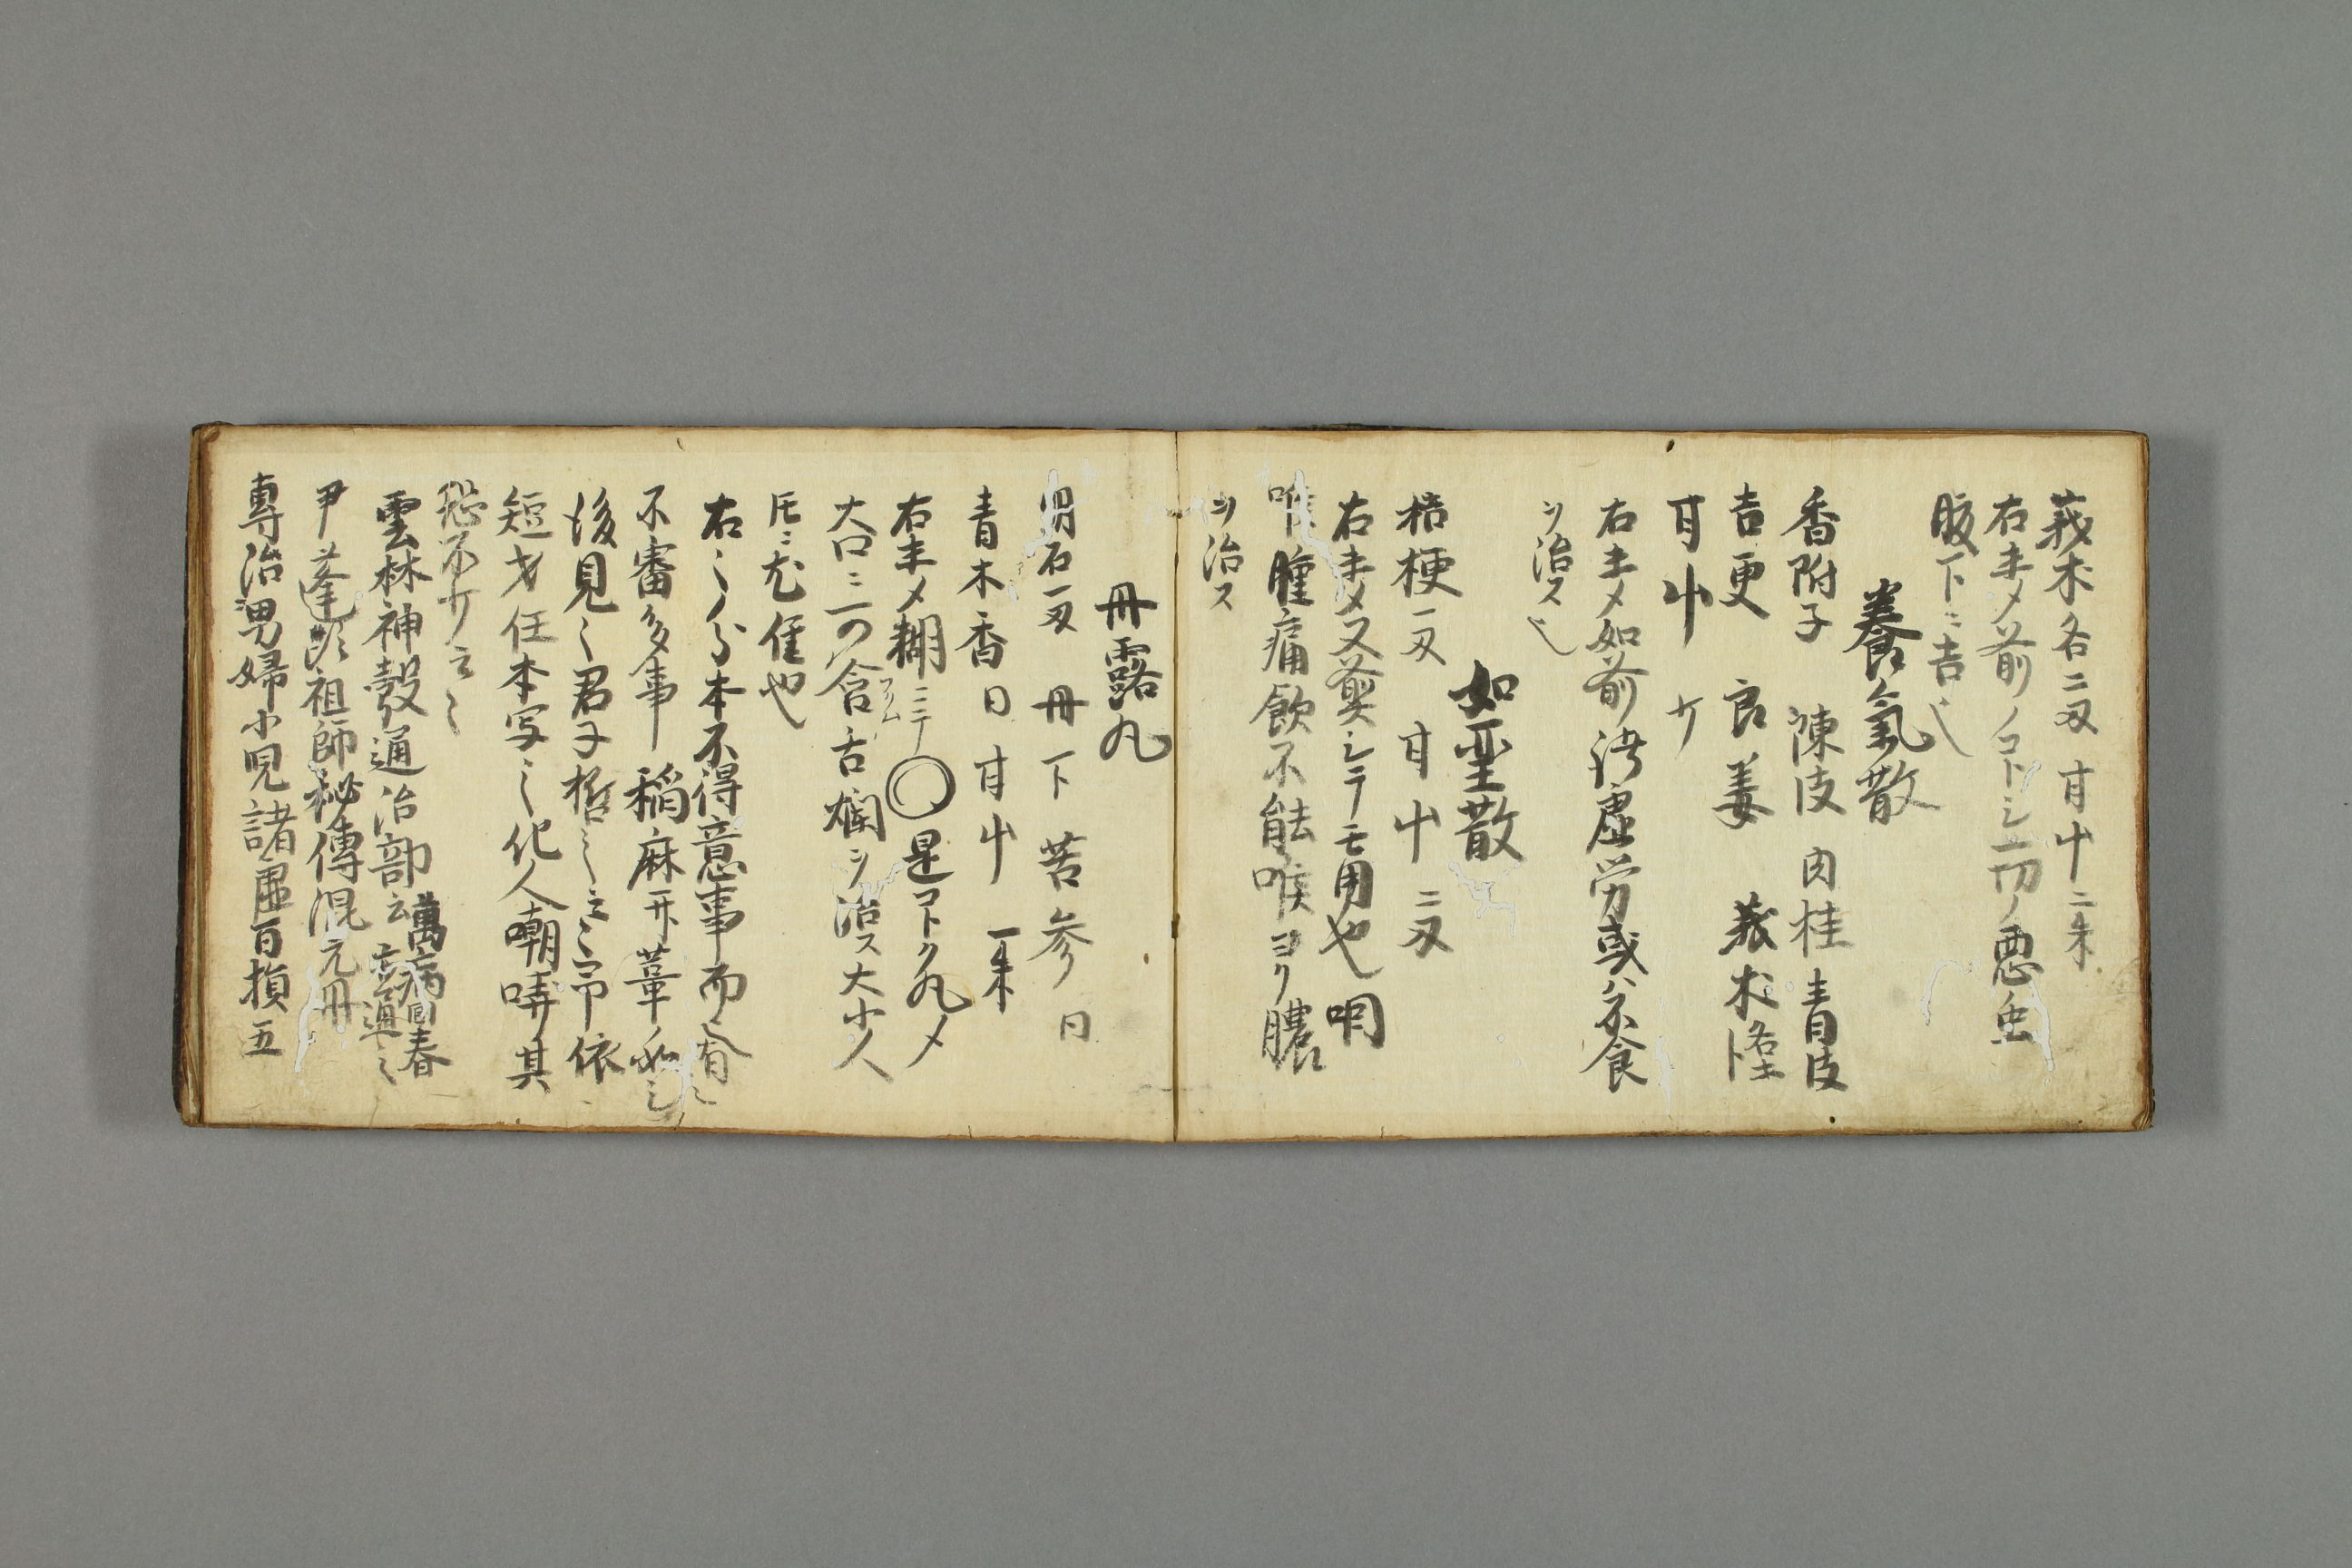 莪朮各二匁 甘中二朱
右末メ前ノコトシ一切ノ悪虫
腹下ニ吉也
養氣散
香附子 陳皮 肉桂 青皮
吉更 良姜 莪朮
甘中 少
右末メ如前諸虚労或ハ不食
ヲ治ス也
如聖散
桔梗一匁 甘中 二匁
右末メ又煎シテモ用也咽
喉腫痛飲不能喉ヨリ膿
ヲ治ス
丹露丸
明石一匁 丹下 苦参 日
青木香 日 甘中 一朱
右末メ糊ニテ〇是コトク丸メ
大口ニ二つ含 舌爛ヲ治ス大小人
右之分本不得意事而
不審多事 稲麻 葦ノ如シ
後見之君子哲之 依
短才任本写之他人嘲哢其
恐不少之
雲林神彀通治部云萬病回春
尹蓬頭祖師秘傳混元丹
專治男婦小児諸虚百損五